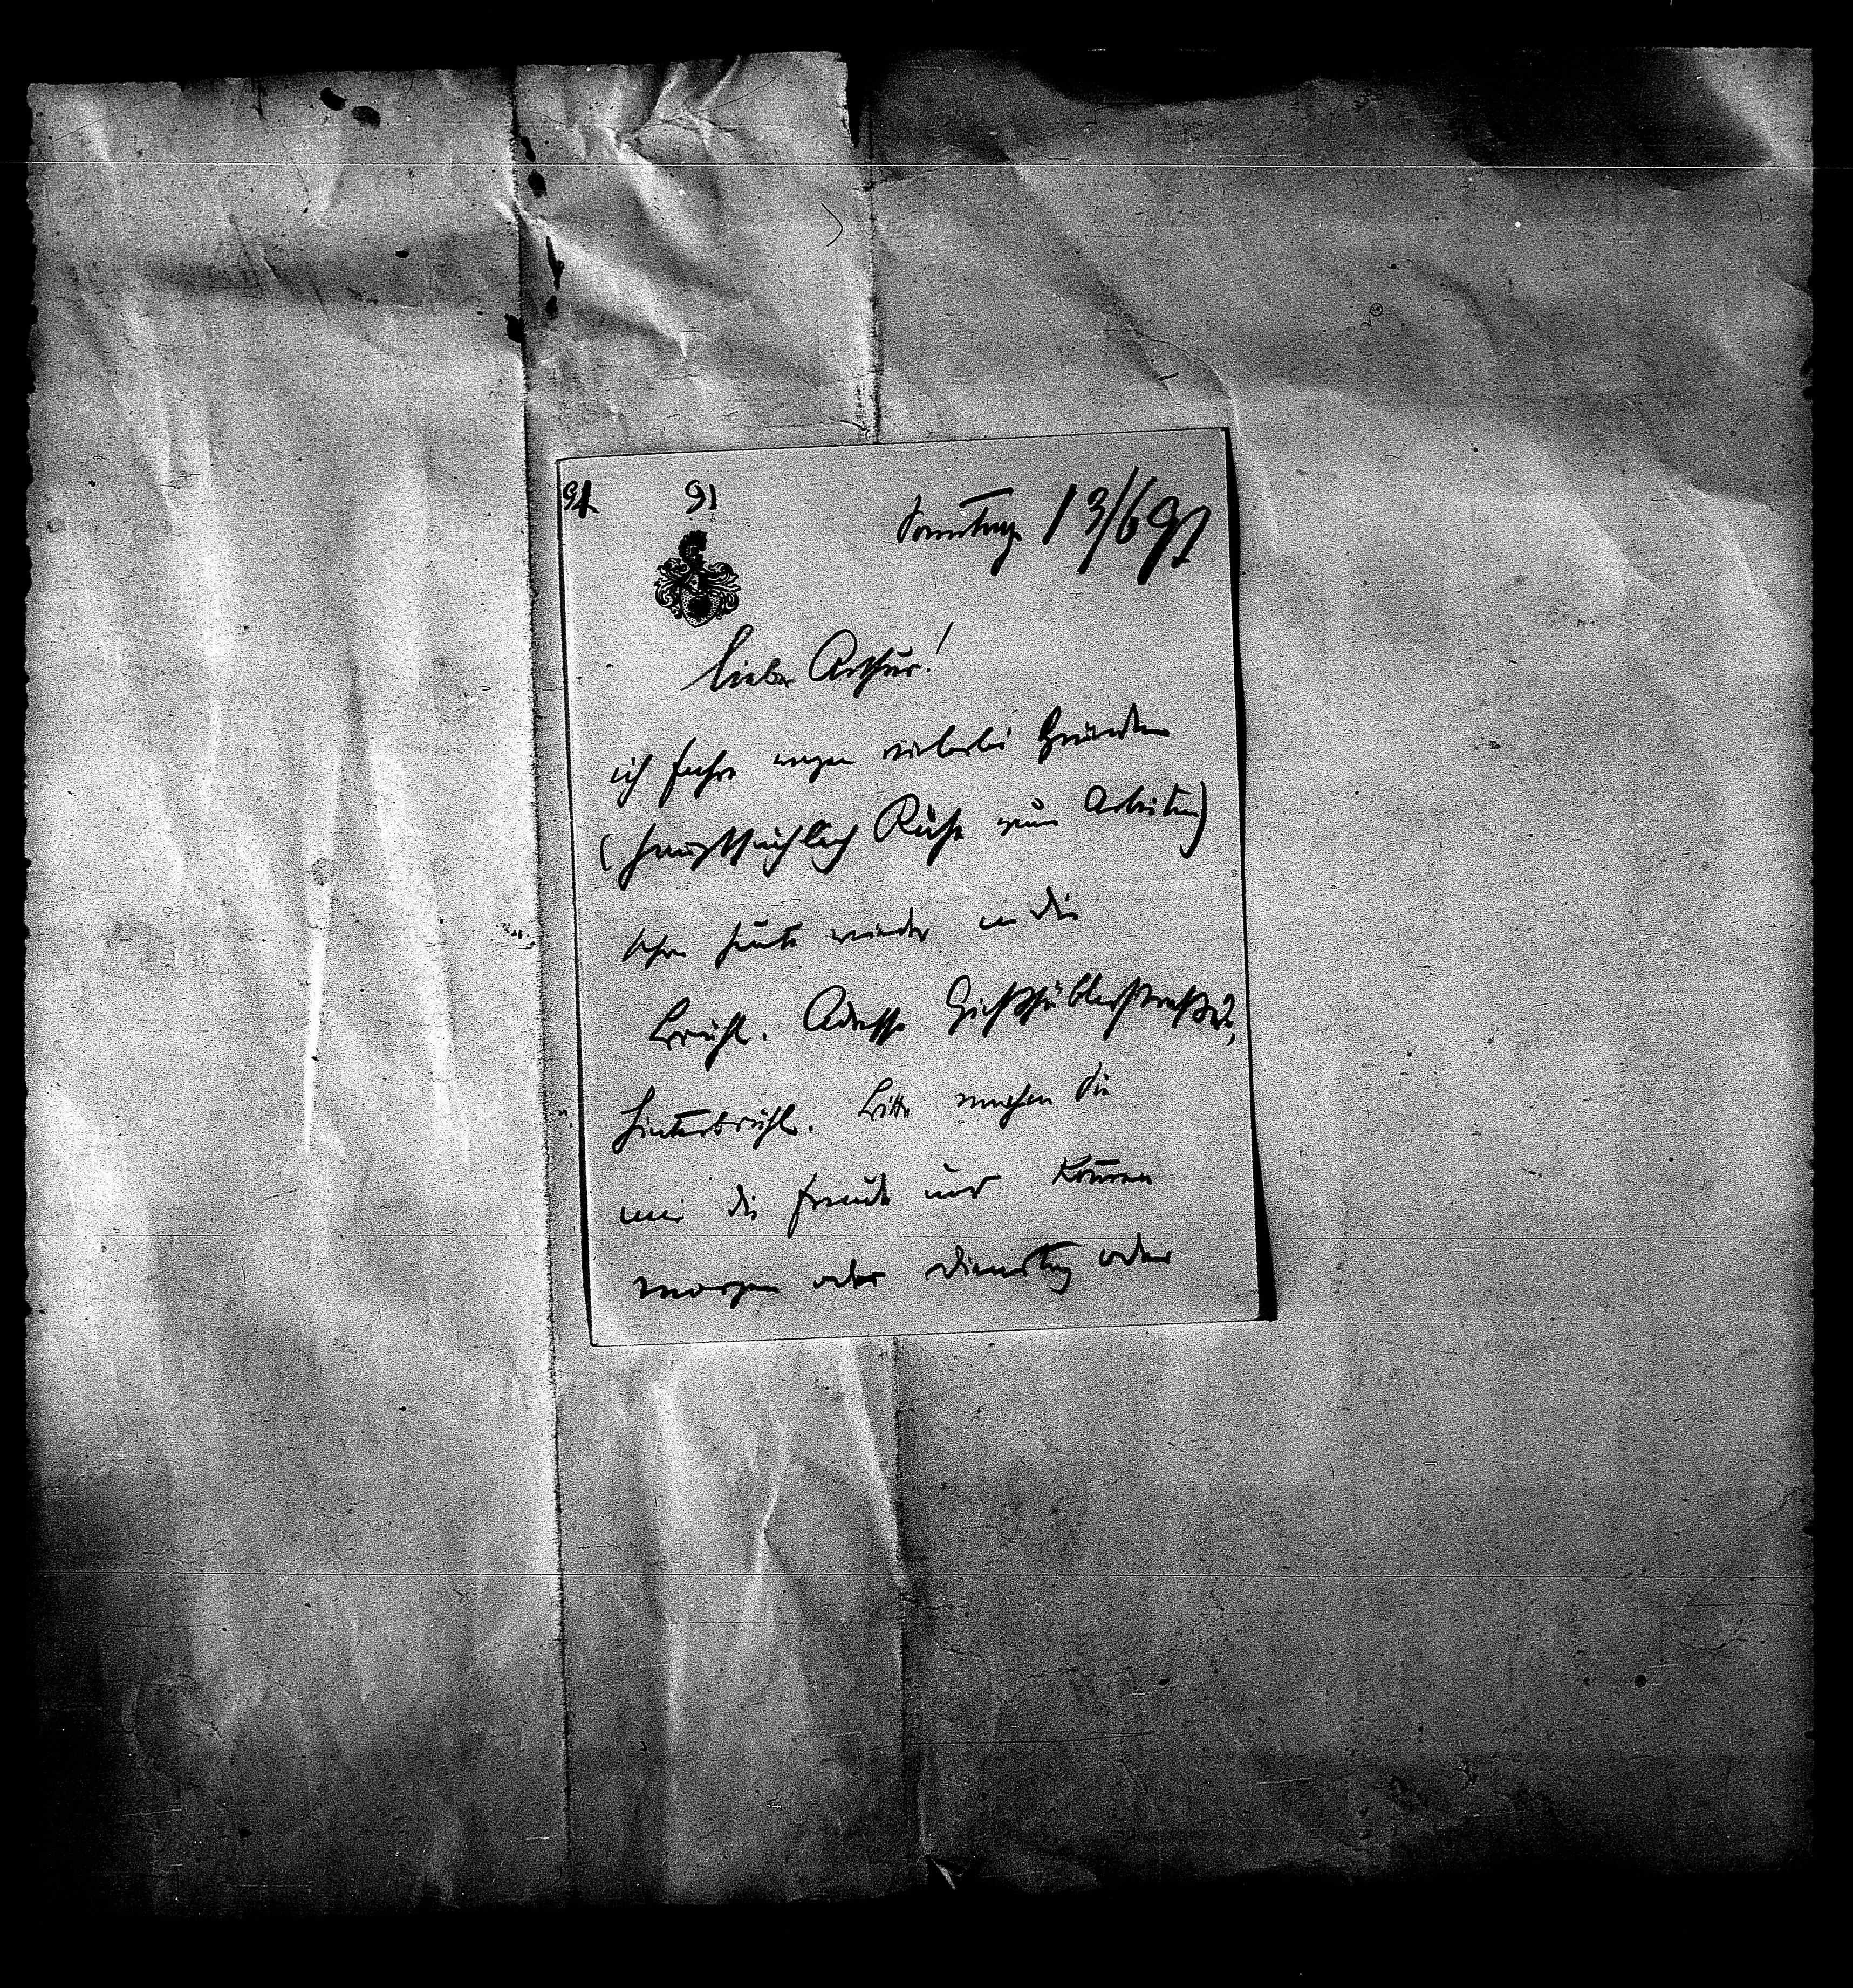 91 91 Sonntag 13/6 97
lieber Arthur!
ich fahre wegen vielerlei Gründen
(hauptsächlich Ruhe zum Arbeiten)
schon heute wieder in die
Brühl. Adresse Gießhüblerstraße 2,
Hinterbrühl. Bitte machen Sie
mir die Freude und kom̅en
morgen oder Dienstag oder